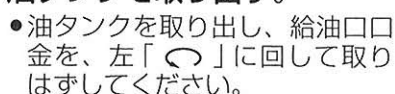 ●油タンクを取り出し、給油口口
金を、左「」に回して取り
はずしてください。